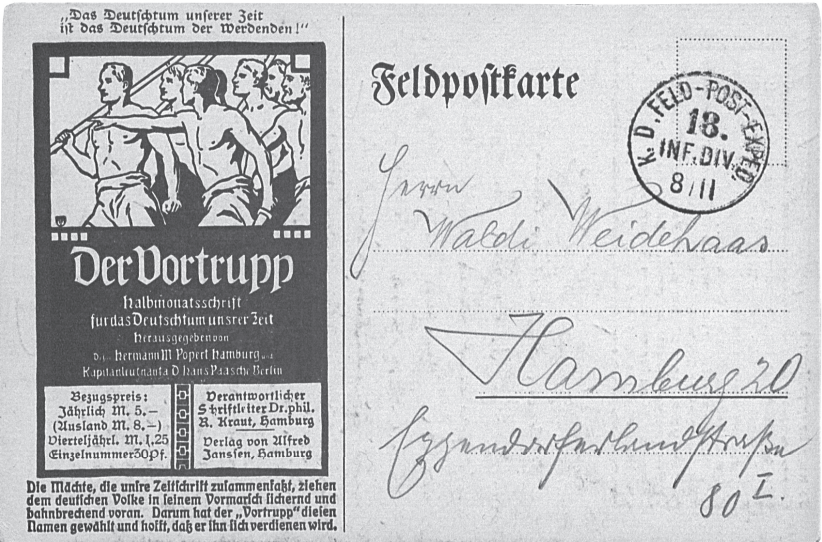 „Das Deutſchtum unſerer Zeit
iſt das Deutſchtum der Werdenden!"
Der Vortrupp
Halbmonatsſchrift
für das Deutſchtum unsrer Zeit
Herausgegeben von
Dr. Hermann M. Popert Hamburg und
Kapitänleutnant a. D. Hans Paasche Berlin
Bezugspreis:
Jährlich M. 5.—
(Ausland M. 8.—)
Vierteljährl. M. 1.25
Einzelnummer 30 Pf.
Verantwortlicher
Schriftleiter Dr. phil.
R. Kraut, Hamburg
Verlag von Alfred
Janssen, Hamburg
Die Mächte, die unſre Zeitſchrift zuſammenfaßt, ziehen
dem deutſchen Volke in ſeinem Vormarſch ſichernd und
bahnbrechend voran. Darum hat der „Vortrupp" dieſen
Namen gewählt und hofft, daß er ihn ſich verdienen wird.
Feldpoſtkarte
K. D. FELD-POST-EXPED.
18.
INF. DIV.
8/11
Herrn
Waldi Weidehaas
Hamburg 20
Eppendorferlandstraße
80 I.